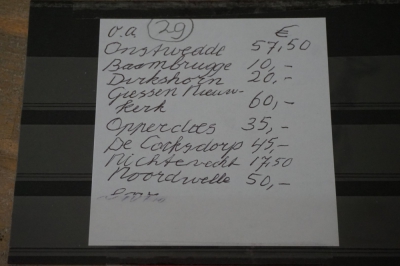 v.a 29 €
Onstwedde 57,50
Baambrugge 10,-
Dirkshorn 20,-
Giessen Nieuw-
kerk 60,-
Opperdoes 35,-
De Cocksdorp 45,-
Nichtevecht 17,50
Noordwelle 50,-